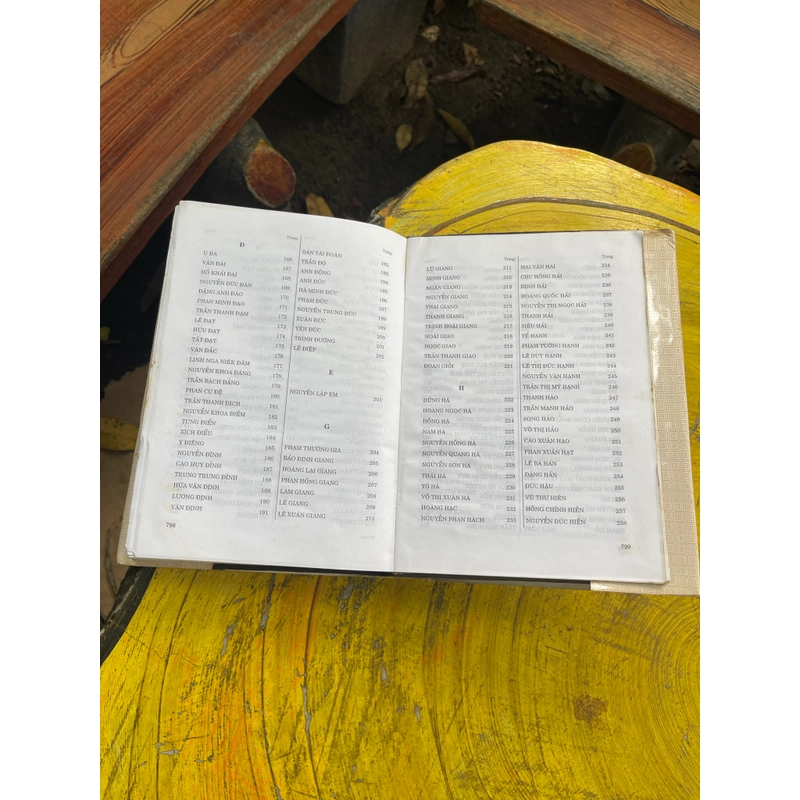 Đ
Trang
Y ĐA 166
VĂN ĐẠI 167
HỒ KHẢI ĐẠI 168
NGUYỄN ĐỨC ĐÀN 169
ĐẶNG ANH ĐÀO 170
PHAN MINH ĐẠO 171
TRẦN THANH ĐẠM 172
LÊ ĐẠT 173
HỮU ĐẠT 174
TẤT ĐẠT 175
VĂN ĐẮC 176
LINH NGA NIÊK ĐĂM 177
NGUYỄN KHOA ĐĂNG 178
TRẦN BẠCH ĐẰNG 179
PHAN CỰ ĐỆ 180
TRẦN THANH ĐỊCH 181
NGUYỄN KHOA ĐIỀM 182
TÙNG ĐIỂN 183
XÍCH ĐIỂU 184
Y ĐIÊNG 185
NGUYÊN ĐÌNH 186
CAO HUY ĐỈNH 187
TRUNG TRUNG ĐỈNH 188
HỨA VĂN ĐỊNH 189
LƯƠNG ĐỊNH 190
VÂN ĐỊNH 191
798
Trang
BÀN TÀI ĐOÀN 192
TRẦN ĐỘ 193
ANH ĐỘNG
ANH ĐỨC
HÀ MINH ĐỨC
PHẠM ĐỨC 196
NGUYỄN TRUNG ĐỨC
XUÂN ĐỨC 199
YÊN ĐỨC 200
TRINH ĐƯỜNG 201
LÊ ĐIỆP 202
E
NGUYỄN LẬP EM 203
G
PHẠM THƯỜNG GIA 204
BẢO ĐỊNH GIANG 205
HOÀNG LẠI GIANG 206
PHAN HỒNG GIANG 207
LAM GIANG 208
LÊ GIANG 209
LÊ XUÂN GIANG 210
Trang
LỮ GIANG 211
MINH GIANG 212
NGÂN GIANG 213
NGUYÊN GIANG 214
THÁI GIANG 215
THANH GIANG 216
TRỊNH HOÀI GIANG 217
HOÀI GIAO 218
NGỌC GIAO 219
TRẦN THANH GIAO 220
ĐOÀN GIỎI 221
H
DŨNG HÀ 222
HOÀNG NGỌC HÀ 223
HỒNG HÀ 224
NAM HÀ 225
NGUYỄN HỒNG HÀ 226
NGUYỄN QUANG HÀ 227
NGUYỄN SƠN HÀ 228
THÁI HÀ 229
TÔ HÀ 230
VÕ THỊ XUÂN HÀ 231
HOÀNG HẠC 232
NGUYỄN PHAN HÁCH 233
Trang
MAI VĂN HAI 234
CHU HỒNG HẢI 235
ĐỊNH HẢI 236
HOÀNG QUỐC HẢI 237
NGUYỄN THỊ NGỌC HẢI 238
THANH HẢI 239
HIẾU HẢI 240
TẾ HANH 241
PHẠM TƯỜNG HẠNH 242
LÊ DUY HẠNH 243
LÊ THỊ ĐỨC HẠNH 244
NGUYỄN VĂN HẠNH 245
TRẦN THỊ MỸ HẠNH 246
THANH HÀO 247
TRẦN MẠNH HẢO 248
SONG HẢO 249
VÕ THỊ HẢO 250
CAO XUÂN HẠO 251
PHAN XUÂN HẠT 252
LÊ BÁ HÂN 253
ĐẶNG HẤN 254
ĐỨC HẬU 255
VŨ THƯ HIÊN 256
HỒNG CHÍNH HIỀN 257
NGUYỄN ĐỨC HIỀN 258
799